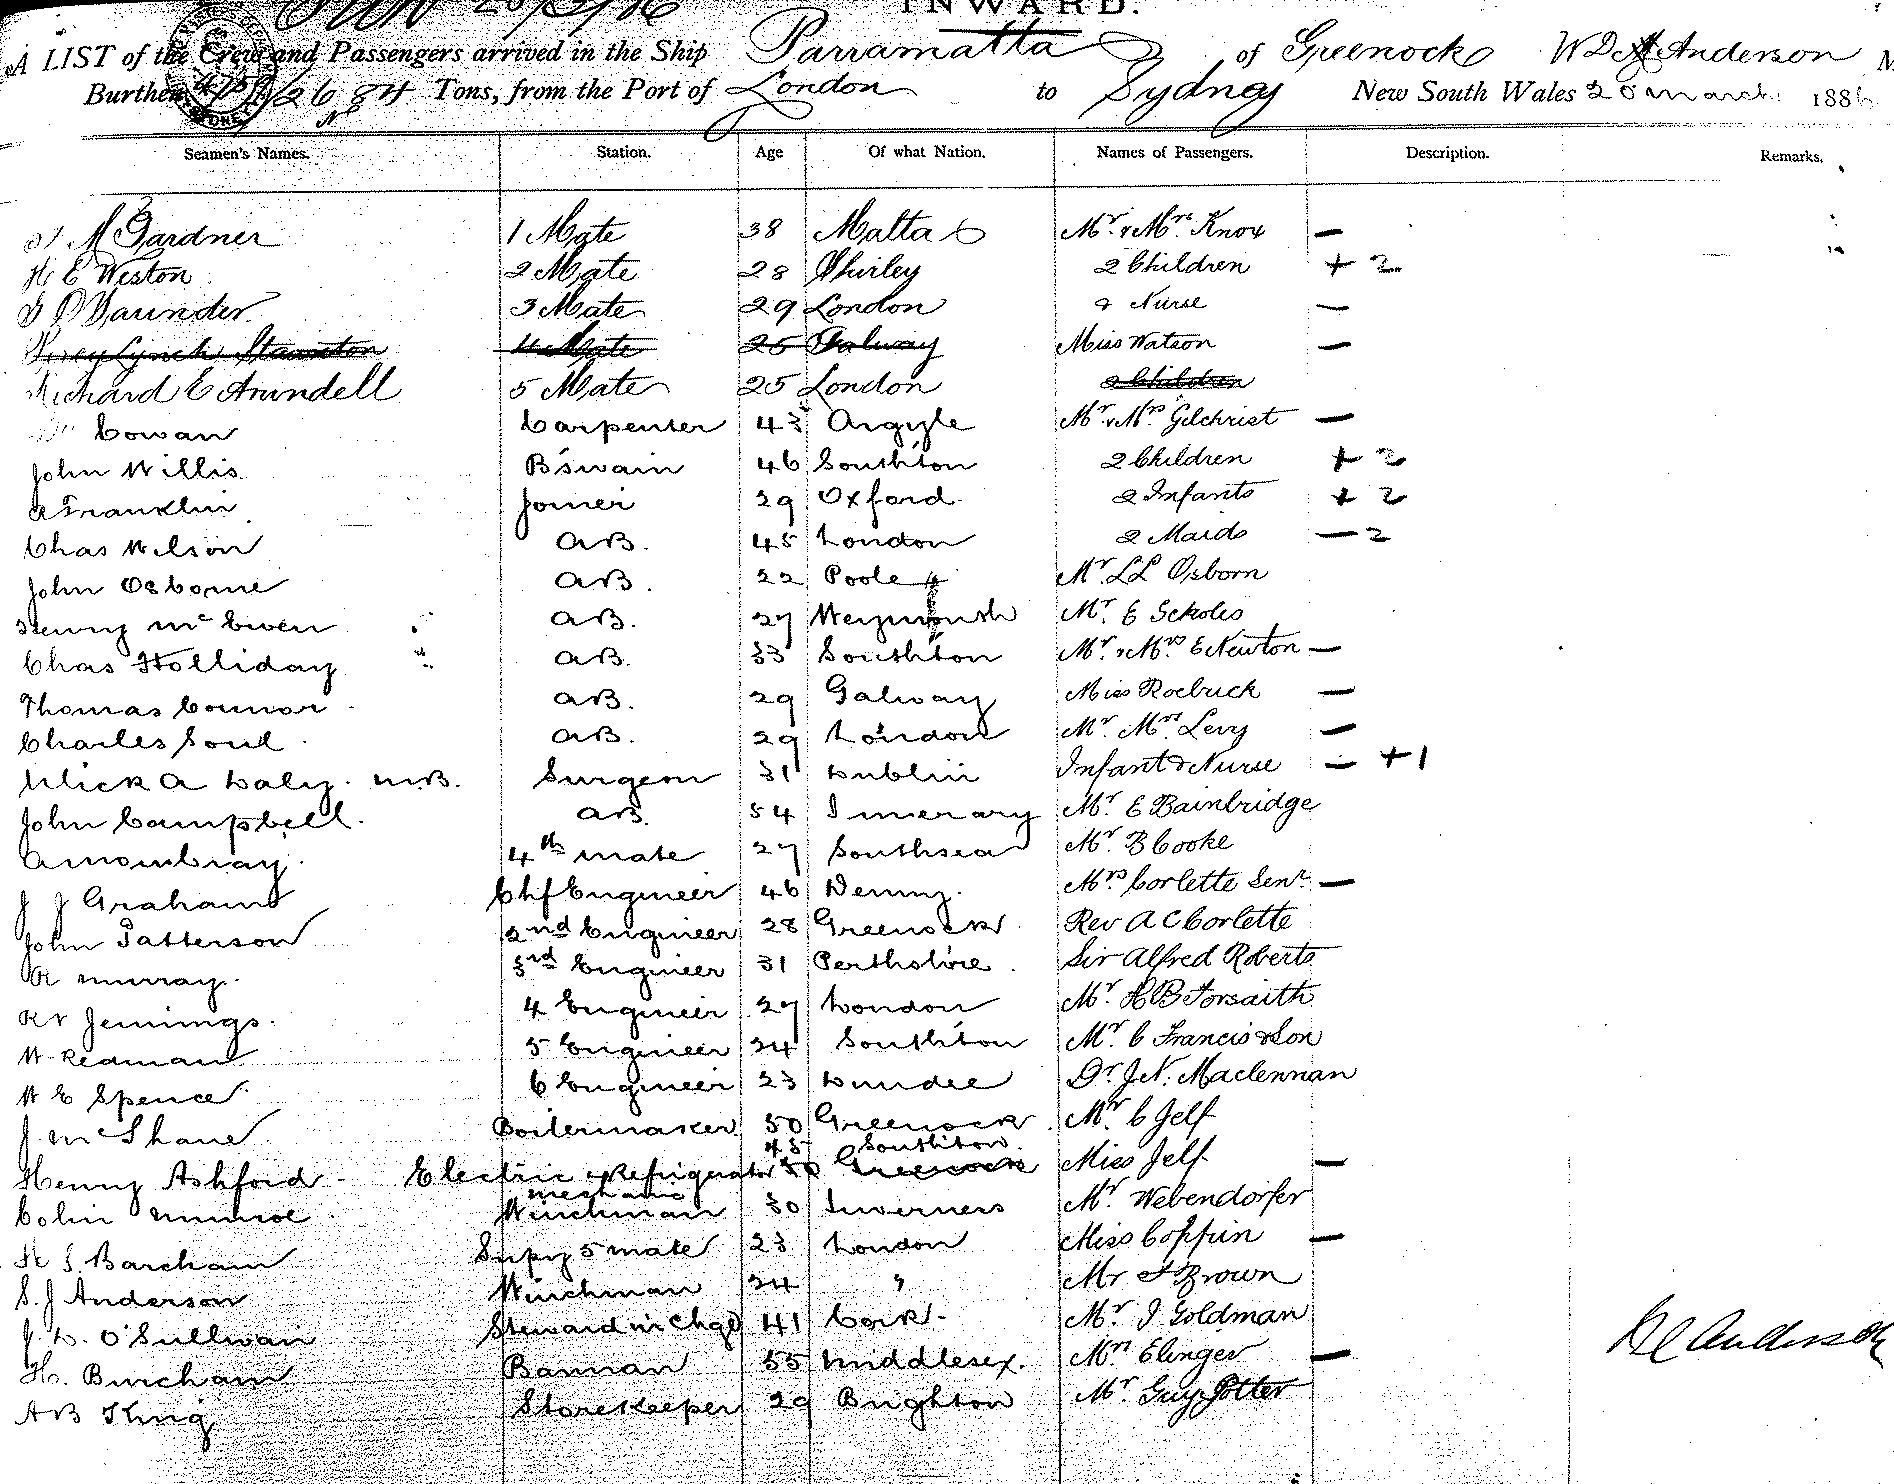 INWARD.
A LIST of the Crew and Passengers arrived in the Ship Parramatta of Greenock W D Anderson
Burthen 2684 Tons, from the Port of London to Sydney New South Wales 20 March 1886
Seamen's Names. Station. Age Of what Nation. Names of Passengers. Description. Remarks.
M Gardner 1 Mate 38 Malta Mr & Mrs Knox —
H E Weston 2 Mate 28 Shirley 2 Children + 2
Saunder 3 Mate 29 London & Nurse —
Lynch Staunton 4 Mate 25 Galway Miss Watson —
Richard E Arundell 5 Mate 25 London 2 Children
Cowan Carpenter 43 Argyle Mr & Mrs Gilchrist —
John Willis B'swain 46 Southton 2 Children + 2
A Franklin Joiner 29 Oxford 2 Infants + 2
Chas Wilson AB. 45 London 2 Maids — 2
John Osborne AB. 22 Poole Mr LL Osborn
Henry McEwen AB. 27 Weymouth Mr E Scholes
Chas Holliday AB. 33 Southton Mr & Mrs E Newton —
Thomas Connor AB. 29 Galway Miss Roebuck —
Charles Soul AB. 29 London Mr Mrs Levy —
Ulick A Daly. M.B. Surgeon 31 Dublin Infant & Nurse — + 1
John Campbell. AB. 54 Inverary Mr E Bainbridge
A Mowbray. 4th mate 27 Southsea Mr B Cooke
J J Graham Chf Engineer 46 Denny. Mrs Corlette Senr —
John Patterson 2nd Engineer 28 Greenock Rev A C Corlette
R Murray. 3rd Engineer 31 Perthshire. Sir Alfred Roberts
Jennings. 4 Engineer 27 London Mr H B Forsaith
W Redman 5 Engineer 24 Southton Mr C Francis & Son
W E Spence 6 Engineer 23 Dundee Dr J N. Maclennan
J McShane Boilermaker 50 Greenock Mr C Jelf
45 Southton
Henry Ashford Electric & Refrigerator 50 Greenock Miss Jelf —
mechanic
Colin Munroe Winchman 30 Inverness Mr Webendorfer
H S. Barcham Supy 5 mate 23 London Miss Coppin —
S. J Anderson Winchman 24 " Mr F Brown
J. D. O'Sullivan Steward in Chge 41 Cork. Mr J Goldman
H. Burcham Barman 55 Middlesex. Mrs Elinger —
AB King Storekeeper 29 Brighton Mr Guy Potter
Anderson